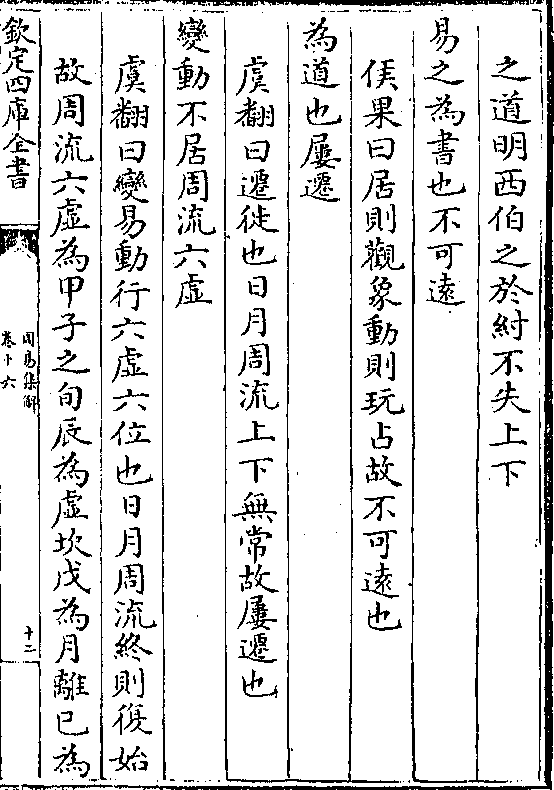 之道明西伯之於紂不失上下
易之為書也不可遠
侯果曰居則觀象動則玩占故不可遠也
為道也屢遷
虞翻曰遷徙也日月周流上下無常故屢遷也
變動不居周流六虛
虞翻曰變易動行六虛六位也日月周流終則復始
故周流六虛為甲子之旬辰為虛坎戊為月離巳為
欽定四庫全書
周易集解
卷十六
十二